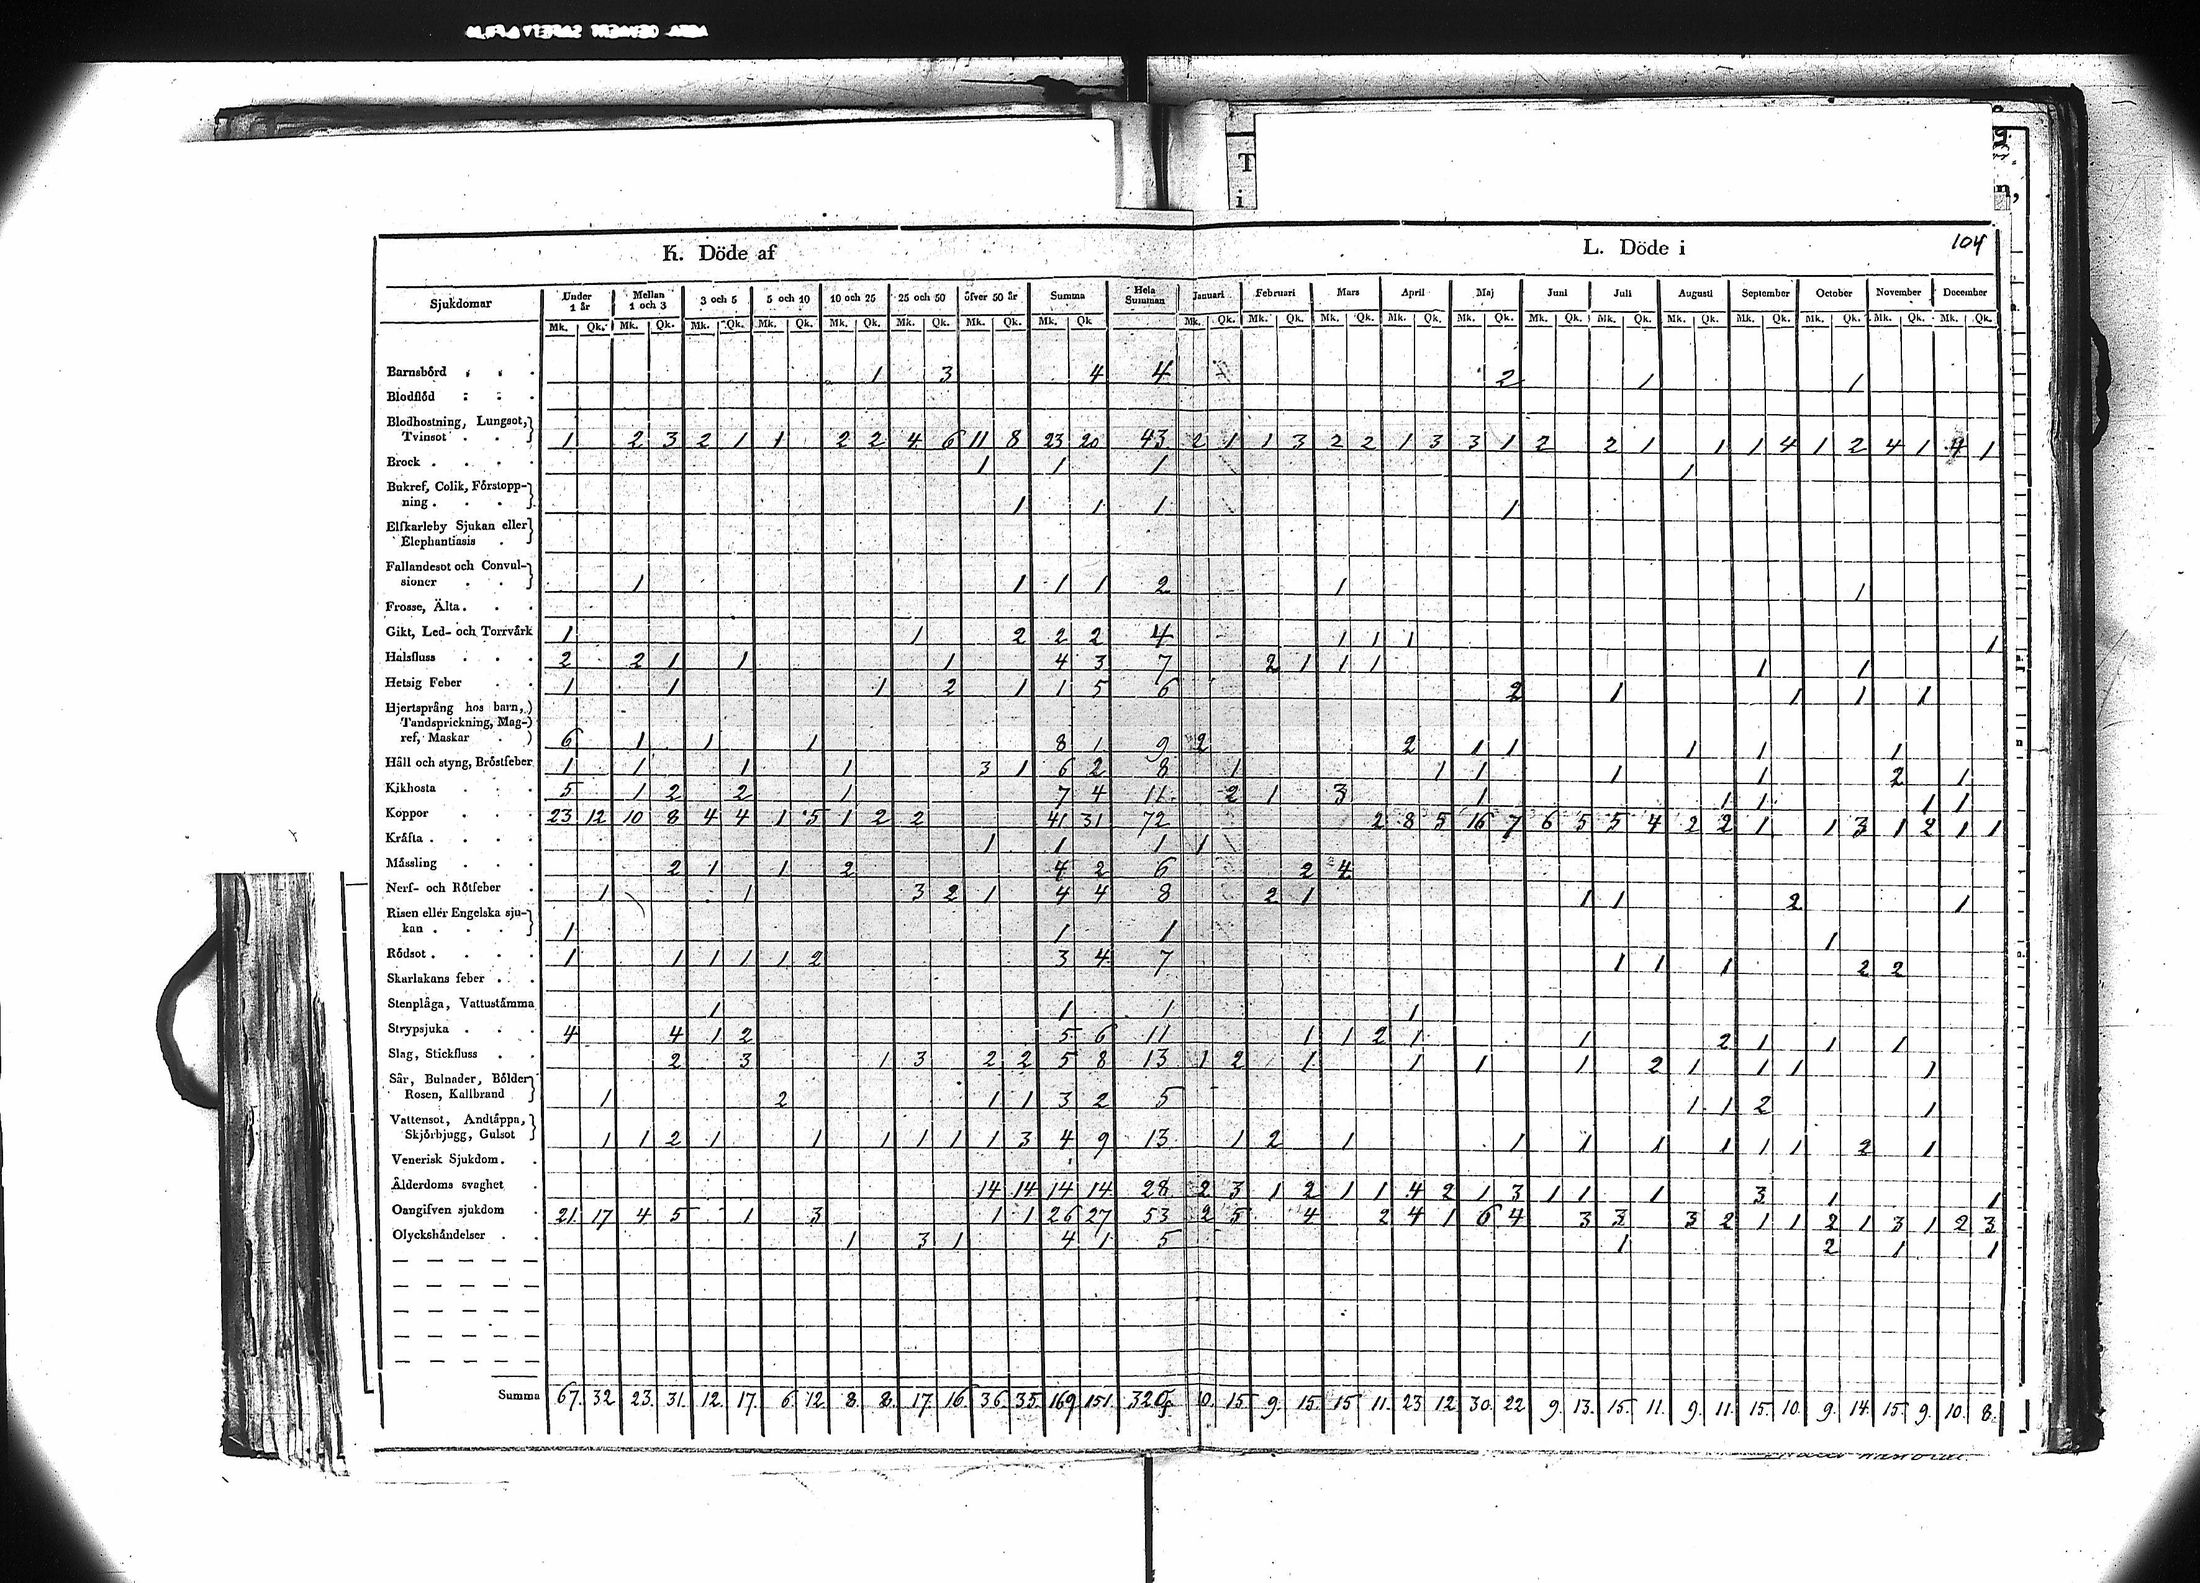 T
i
n,
K. Döde af
L. Döde i
104
Sjukdomar Under 1 år Mellan 1 och 3 3 och 5 5 och 10 10 och 25 25 och 50 öfver 50 år Summa Hela Summan Januari Februari Mars April Maj Juni Juli Augusti September October November December
Mk. Qk. Mk. Qk. Mk. Qk. Mk. Qk. Mk. Qk. Mk. Qk. Mk. Qk. Mk. Qk Mk. Qk. Mk. Qk. Mk. Qk. Mk. Qk. Mk. Qk. Mk. Qk. Mk. Qk. Mk. Qk. Mk. Qk. Mk. Qk. Mk. Qk. Mk. Qk.
Barnsbörd 1 3 4 4 2 1 1
Blodflöd
Blodhostning, Lungsot,
Tvinsot 1 2 3 2 1 1 2 2 4 6 11 8 23 20 43 2 1 1 3 2 2 1 3 3 1 2 2 1 1 1 4 1 2 4 1 4 1
Brock 1 1 1 1
Bukref, Colik, Förstopp-
ning 1 1 1 1
Elfkarleby Sjukan eller
Elephantiasis
Fallandesot och Convul-
sioner 1 1 1 1 2 1 1
Frosse, Älta
Gikt, Led- och Torrvärk 1 1 2 2 2 4 1 1 1 1
Halsfluss 2 2 1 1 1 4 3 7 2 1 1 1 1 1
Hetsig Feber 1 1 1 2 1 1 5 6 2 1 1 1 1
Hjertsprång hos barn,
Tandsprickning, Mag-
ref, Maskar 6 1 1 1 8 1 9 2 2 1 1 1 1 1
Håll och styng, Bröstfeber 1 1 1 1 3 1 6 2 8 1 1 1 1 1 2 1
Kikhosta 5 1 2 2 1 7 4 11 2 1 3 1 1 1 1 1
Koppor 23 12 10 8 4 4 1 5 1 2 2 41 31 72 2 8 5 16 7 6 5 5 4 2 2 1 1 3 1 2 1 1
Kräfta 1 1 1 1
Mässling 2 1 1 2 4 2 6 2 4
Nerf- och Rötfeber 1 1 3 2 1 4 4 8 2 1 1 1 2 1
Risen eller Engelska sju-
kan 1 1 1 1
Rödsot 1 1 1 1 1 2 3 4 7 1 1 1 2 2
Skarlakans feber
Stenplåga, Vattustämma 1 1 1 1
Strypsjuka 4 4 1 2 5 6 11 1 1 2 1 1 2 1 1 1
Slag, Stickfluss 2 3 1 3 2 2 5 8 13 1 2 1 1 1 1 2 1 1 1 1
Sår, Bulnader, Bölder
Rosen, Kallbrand 1 2 1 1 3 2 5 1 1 2 1
Vattensot, Andtäppa,
Skjörbjugg, Gulsot 1 1 2 1 1 1 1 1 1 3 4 9 13 1 2 1 1 1 1 1 1 1 2 1
Venerisk Sjukdom
Ålderdoms svaghet 14 14 14 14 28 2 3 1 2 1 1 4 2 1 3 1 1 1 3 1 1
Oangifven sjukdom 21 17 4 5 1 3 1 1 26 27 53 2 5 4 2 4 1 6 4 3 3 3 2 1 1 2 1 3 1 2 3
Olyckshändelser 1 3 1 4 1 5 1 2 1 1
Summa 67. 32 23. 31. 12. 17. 6. 12 8. 8. 17. 16. 36. 35. 169. 151. 320 10. 15. 9. 15. 15 11. 23 12 30. 22 9. 13. 15. 11. 9. 11. 15. 10. 9. 14. 15. 9. 10. 8.